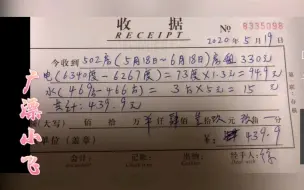 收 据
RECEIPT
№ 8335098
2020年5月19日
今收到 502房(5月18日~6月18日)房租 330元
电(6340度-6267度)=73度×1.3元=94.9元
水(469度-466方)=3方×5元=15元
共计:439.9元
(大写) 佰 拾 万 仟 肆佰 叁拾 玖元 玖角
¥:439.9
单位(盖章)
会计: 记账: 经手人:
广漂小飞